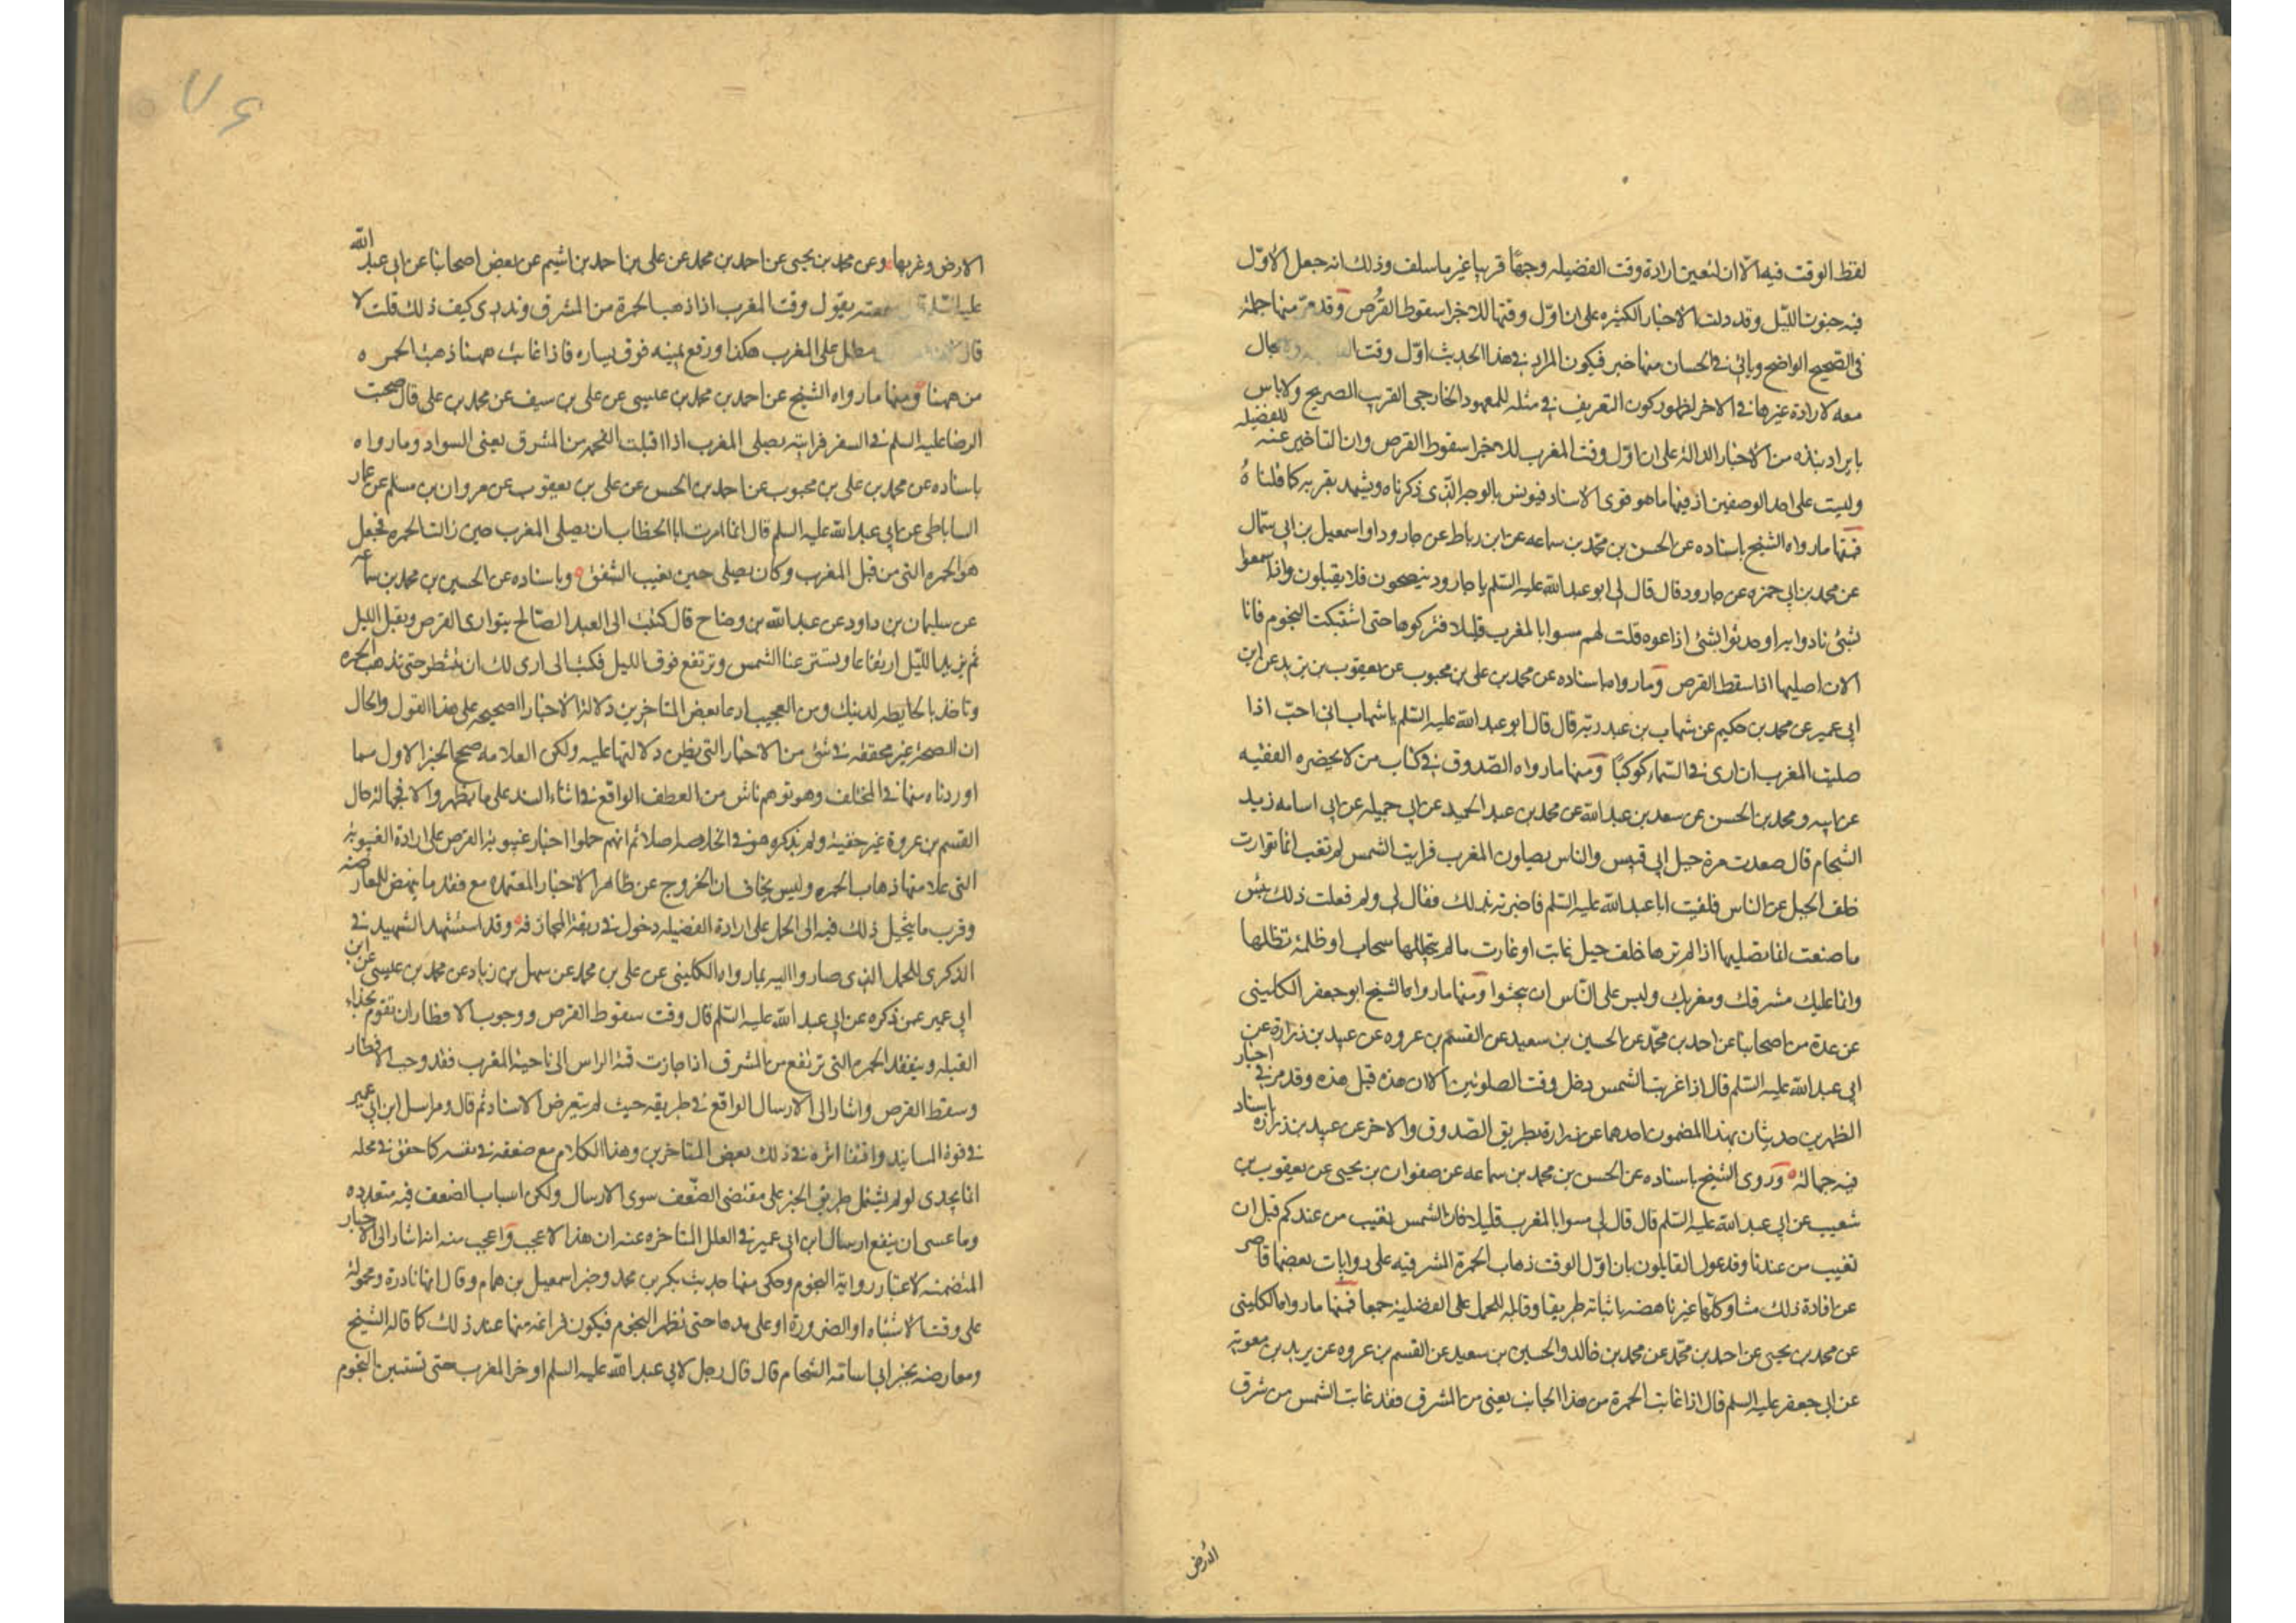 لفظ الوقت فيه الا ان لتعين ارادة وقت الفضيله وجهًا قريبا غير ما سلف وذلك انه جعل الاوّل
فيه جنوت اللّيل وقد دلت الاخبار الكثيره على ان اوّل وقتها للاجزا سقوط القُرص وقد مرّ منها جملة
فى الصّحيح الواضح وياتى فى الحسان منها خبر فيكون المراد فى هذا الحديث اوّل وقت مجال
معه لارادة غيرها فى الاخر لظهور كون التعريف فى مثله للمعهود الخارجى القرب الصريح ولا باس
بايراد نبذه من الاخبار الدالة على ان اوّل وقت المغرب للاجزا سقوط القرص وان التاخير عنه للفضيله
وليست على احد الوصفين اذ فيها ما هو قوى الاسناد فيونس بالوجه الّذى ذكرناه ويشهد بقربه كما قلناهُ
فمنها ما رواه الشيخ باسناده عن الحسن بن محمّد بن سماعه عن ابن رباط عن جارود او اسمعيل بن ابى سمّال
عن محمد بن ابى حمزه عن جارود قال قال لى ابو عبد الله عليه السّلم يا جارود ينصحون فلا يقبلون واذا سمعوا
بشئ نادوا به او حدثوا بشئ اذاعوه قلت لهم مسوا بالمغرب قليلا فتركوها حتى اشتبكت النجوم فانا
الان اصليها اذا سقط القرص وما رواه باسناده عن محمد بن على بن محبوب عن يعقوب بن يزيد عن ابن
ابى عمير عن محمد بن حكيم عن شهاب بن عبد ربّه قال قال ابو عبد الله عليه السّلم يا شهاب انى احبّ اذا
صليت المغرب ان ارى فى السّماء كوكبًا ومنها ما رواه الصّدوق فى كتاب من لا يحضره الفقيه
عن ابيه ومحمد بن الحسن عن سعد بن عبد الله عن محمد بن عبد الحميد عن ابى جميله عن ابى اسامه زيد
الشحام قال صعدت مرة جبل ابى قبيس والناس يصلون المغرب فرايت الشمس لم تغب انما توارت
خلف الجبل عن الناس فلقيت ابا عبد الله عليه السّلم فاخبرته بذلك فقال لى ولم فعلت ذلك بئس
ما صنعت انما تصليها اذا لم ترها خلف جبل غابت او غارت ما لم يتجللها سحاب او ظلمة تظلها
وانما عليك مشرقك ومغربك وليس على النّاس ان يبحثوا ومنها ما رواه الشيخ ابو جعفر الكلينى
عن عدة من اصحابنا عن احمد بن محمّد عن الحسين بن سعيد عن القسم بن عروه عن عبيد بن زرارة عن
ابى عبد الله عليه السّلم قال اذا غربت الشمس دخل وقت الصلوتين الا ان هذه قبل هذه وقد مر فى اخبار
الظهرين حديثان بهذا المضمون احدهما عن زرارة بطريق الصدوق والاخر عن عبيد بن زرارة باسناد
فيه جهالة وروى الشيخ باسناده عن الحسن بن محمد بن سماعه عن صفوان بن يحيى عن يعقوب بن
شعيب عن ابى عبد الله عليه السّلم قال قال لى مسوا بالمغرب قليلا فان الشمس تغيب من عندكم قبل ان
تغيب من عندنا وقد عول القايلون بان اوّل الوقت ذهاب الحمرة المشرقيه على روايات بعضها قاصر
عن افادة ذلك متنا وكلّها غير ناهضه باثباته طريقا وقابله للحمل على الفضلية جمعا فمنها ما رواه الكلينى
عن محمد بن يحيى عن احمد بن محمّد عن محمد بن خالد والحسين بن سعيد عن القسم بن عروه عن بريد بن معوية
عن ابى جعفر عليه السلم قال اذا غابت الحمرة من هذا الجانب يعنى من المشرق فقد غابت الشمس من شرق
الارض
الارض وغربها وعن محمد بن يحيى عن احمد بن محمد عن على بن احمد بن اشيم عن بعض اصحابنا عن ابى عبد الله
عليه السّلم قال سمعته يقول وقت المغرب اذا ذهب الحمرة من المشرق وتدرى كيف ذلك قلت لا
قال مطل على المغرب هكذا ورفع يمينه فوق يساره فاذا غابت ههنا ذهبت الحمره
من ههنا ومنها ما رواه الشيخ عن احمد بن محمد بن عيسى عن على بن سيف عن محمد بن على قال صحبت
الرضا عليه السلم فى السفر فرايته يصلى المغرب اذا اقبلت الفحمه من المشرق يعنى السواد وما رواه
باسناده عن محمد بن على بن محبوب عن احمد بن الحسن عن على بن يعقوب عن مروان بن مسلم عن عمار
الساباطى عن ابى عبد الله عليه السلم قال انما امرت ابا الخطاب ان يصلى المغرب حين زالت الحمره فجعل
هو الحمره التى من قبل المغرب وكان يصلى حين يغيب الشفق وباسناده عن الحسين بن محمد بن سماعه
عن سليمان بن داود عن عبد الله بن وضاح قال كتبت الى العبد الصّالح يتوارى القرص ويقبل الليل
ثم يزيد اللّيل ارتفاعا ويستتر عنا الشمس وترتفع فوق الليل فكتب الى ارى لك ان تنتظر حتى تذهب الحمره
وتاخذ بالحايطه لدينك ومن العجيب ادعا بعض المتاخرين دلالة الاخبار الصحيحه على هذا القول والحال
ان الصحة غير محققه فى شئ من الاخبار التى يظن دلالتها عليه ولكن العلامه صحح الخبر الاول مما
اوردناه منها فى المختلف وهو توهم ناش من العطف الواقع فى اثناء السند على ما يظهر والا فجهالة حال
القسم بن عروة غير خفية ولم يذكره هو فى الخلاصه اصلا ثم انهم حملوا اخبار غيبوبة القرص على ارادة الغيبوبة
التى علامتها ذهاب الحمره وليس بخاف ان الخروج عن ظاهر الاخبار المعتمده مع فقد ما ينهض للمعارضه
وقرب ما يتخيل ذلك فيه الى الحمل على ارادة الفضيله دخول فى ربقة المجازفه وقد استشهد الشهيد فى
الذكرى للحمل الذى صاروا اليه بما رواه الكلينى عن على بن محمد عن سهل بن زياد عن محمد بن عيسى عن ابن
ابى عمير عمن ذكره عن ابى عبد الله عليه السّلم قال وقت سقوط القرص ووجوب الافطار ان تقوم بحذاء
القبله ويتفقد الحمره التى ترتفع من المشرق اذا جازت قمة الراس الى ناحية المغرب فقد وجب الافطار
وسقط القرص واشار الى الارسال الواقع فى طريقه حيث لم يتعرض الاسناد ثم قال ومراسل ابن ابى عمير
فى قوة المسانيد واقتفا اثره فى ذلك بعض المتاخرين وهذا الكلام مع ضعفه فى نفسه كما حقق فى محله
انما يجدى لو لم يشتمل طريق الخبر على مقتضى الضّعف سوى الارسال ولكن اسباب الضعف فيه متعدده
وما عسى ان ينفع ارسال ابن ابى عمير فى العلل المتاخره عنه ان هذا لاعجب واعجب منه انه اشار الى الاخبار
المتضمنه لاعتبار رواية النجوم وحكى منها حديث بكر بن محمد وخبر اسمعيل بن همام وقال انها نادرة ومحمولة
على وقت الاشتباه او الضرورة او على مدها حتى تظهر النجوم فيكون فراغه منها عند ذلك كما قاله الشيخ
ومعارضه بخبر ابى اسامه الشحام قال قال رجل لابى عبد الله عليه السلم اوخر المغرب حتى تستبين النجوم